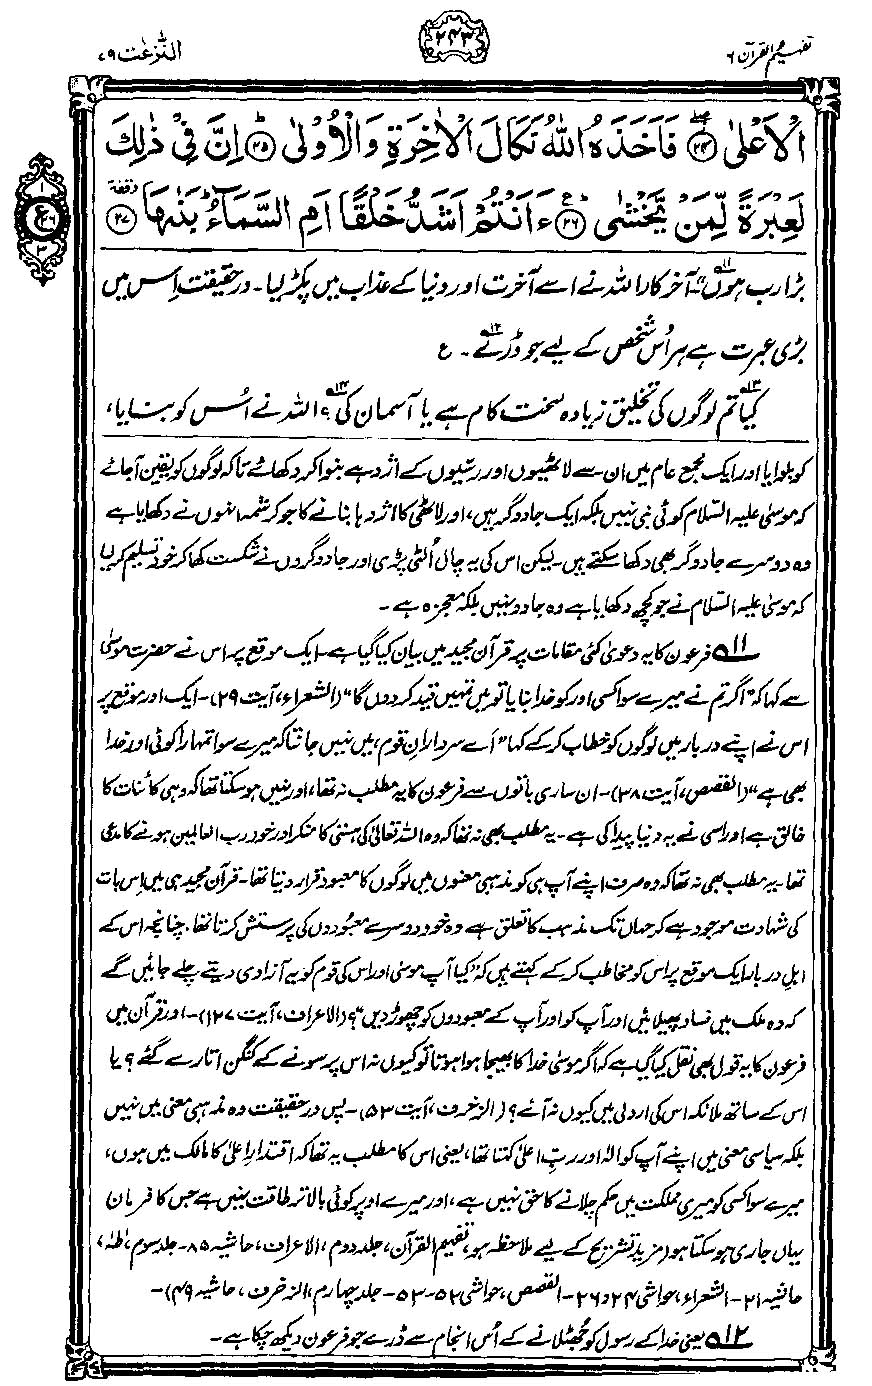 تفہیم القرآن ۶
۲۴۳
النّٰزعٰت ۷۹
الْاَعْلٰى ۝۲۴ فَاَخَذَهُ اللّٰهُ نَكَالَ الْاٰخِرَةِ وَالْاُوْلٰى ۝۲۵ اِنَّ فِیْ ذٰلِكَ
لَعِبْرَةً لِّمَنْ یَّخْشٰى ۝۲۶ ءَاَنْتُمْ اَشَدُّ خَلْقًا اَمِ السَّمَآءُ بَنٰىهَا ۝۲۷
بڑا رب ہوں“۔ ۱۱ آخر کار اللہ نے اسے آخرت اور دنیا کے عذاب میں پکڑ لیا۔ درحقیقت اِس میں
بڑی عبرت ہے ہر اُس شخص کے لیے جو ڈرے ۱۲۔ ع
کیا ۱۳ تم لوگوں کی تخلیق زیادہ سخت کام ہے یا آسمان کی ۱۴؟ اللہ نے اُس کو بنایا،
کو بلوایا اور ایک مجمع عام میں ان سے لاٹھیوں اور رسّیوں کے اژدہے بنوا کر دکھائے تاکہ لوگوں کو یقین آجائے
کہ موسیٰ علیہ السّلام کوئی نبی نہیں بلکہ ایک جادوگر ہیں، اور لاٹھی کا اژدہا بنانے کا جو کرشمہ انہوں نے دکھایا ہے
وہ دوسرے جادوگر بھی دکھا سکتے ہیں۔ لیکن اس کی یہ چال اُلٹی پڑی اور جادوگروں نے شکست کھا کر خود تسلیم کر لیا
کہ موسیٰ علیہ السّلام نے جو کچھ دکھایا ہے وہ جادو نہیں بلکہ معجزہ ہے۔
۱۱؎ فرعون کا یہ دعویٰ کئی مقامات پر قرآن مجید میں بیان کیا گیا ہے۔ ایک موقع پر اس نے حضرت موسیٰ
سے کہا کہ ”اگر تم نے میرے سوا کسی اور کو خدا بنایا تو میں تمہیں قید کر دوں گا“ (الشعراء، آیت ۲۹)۔ ایک اور موقع پر
اس نے اپنے دربار میں لوگوں کو خطاب کرکے کہا ”اَے سردارانِ قوم، میں نہیں جانتا کہ میرے سوا تمہارا کوئی اور خدا
بھی ہے“ (القصص، آیت ۳۸)۔ ان ساری باتوں سے فرعون کا یہ مطلب نہ تھا، اور نہیں ہو سکتا تھا کہ وہی کائنات کا
خالق ہے اور اسی نے یہ دنیا پیدا کی ہے۔ یہ مطلب بھی نہ تھا کہ وہ اللہ تعالیٰ کی ہستی کا منکر اور خود رب العالمین ہونے کا مدعی
تھا۔ یہ مطلب بھی نہ تھا کہ وہ صرف اپنے آپ ہی کو مذہبی معنوں میں لوگوں کا معبود قرار دیتا تھا۔ قرآن مجید ہی میں اِس بات
کی شہادت موجود ہے کہ جہاں تک مذہب کا تعلق ہے وہ خود دوسرے معبُودوں کی پرستش کرتا تھا، چنانچہ اس کے
اہلِ دربار ایک موقع پر اس کو مخاطب کرکے کہتے ہیں کہ ”کیا آپ موسیٰ اور اس کی قوم کو یہ آزادی دیتے چلے جائیں گے
کہ وہ ملک میں فساد پھیلائیں اور آپ کو اور آپ کے معبودوں کو چھوڑ دیں“؟ (الاعراف، آیت ۱۲۷)۔ اور قرآن میں
فرعون کا یہ قول بھی نقل کیا گیا ہے کہ اگر موسیٰ خدا کا بھیجا ہوا ہوتا تو کیوں نہ اس پر سونے کے کنگن اتارے گئے؟ یا
اس کے ساتھ ملائکہ اس کی اردلی میں کیوں نہ آئے؟ (الزخرف، آیت ۵۳)۔ پس درحقیقت وہ مذہبی معنی میں نہیں
بلکہ سیاسی معنی میں اپنے آپ کو الٰہ اور ربِّ اعلیٰ کہتا تھا، یعنی اس کا مطلب یہ تھا کہ اقتدارِ اعلیٰ کا مالک میں ہوں،
میرے سوا کسی کو میری مملکت میں حکم چلانے کا حق نہیں ہے، اور میرے اوپر کوئی بالاتر طاقت نہیں ہے جس کا فرمان
یہاں جاری ہو سکتا ہو (مزید تشریح کے لیے ملاحظہ ہو، تفہیم القرآن، جلد دوم، الاعراف، حاشیہ ۸۵۔ جلد سوم، طٰہٰ،
حاشیہ ۲۱۔ الشعراء، حواشی ۲۴ و ۲۶۔ القصص، حواشی ۵۲۔۵۳۔ جلد چہارم، الزخرف، حاشیہ ۴۹)۔
۱۲؎ یعنی خدا کے رسول کو جھٹلانے کے اُس انجام سے ڈرے جو فرعون دیکھ چکا ہے۔